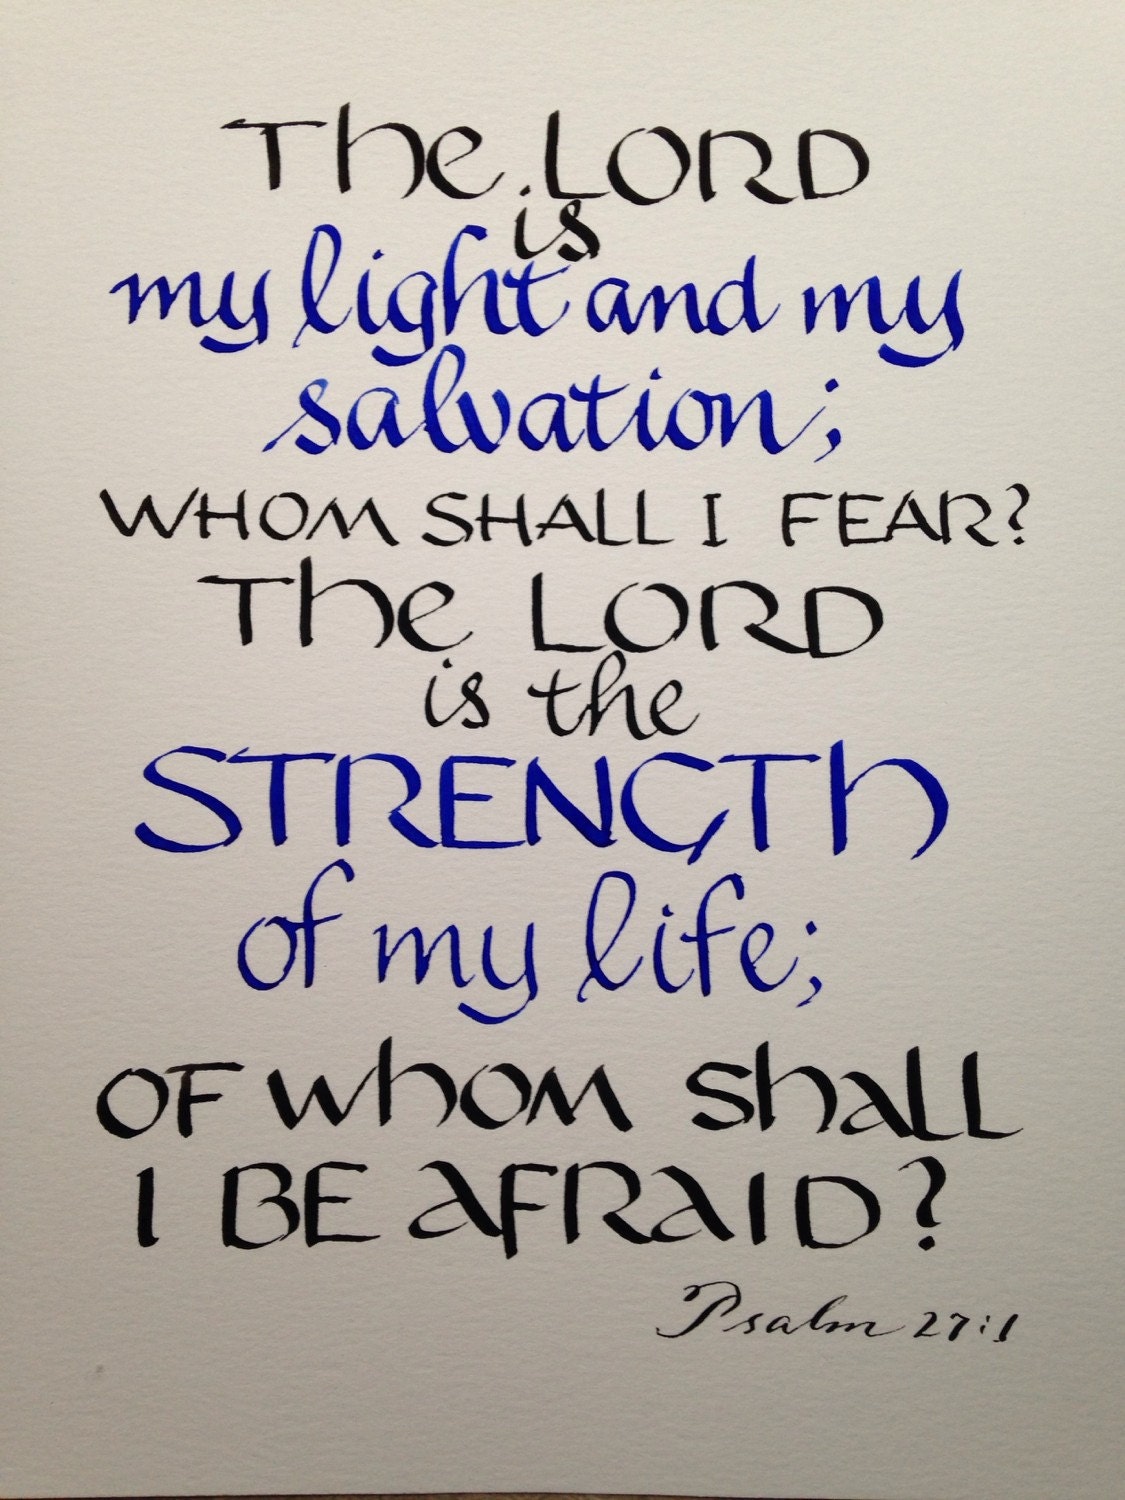 The LORD
is
my light and my
salvation;
WHOM SHALL I FEAR?
The LORD
is the
STRENGTh
of my life;
OF whom shall
I BE AFRAID?
Psalm 27:1